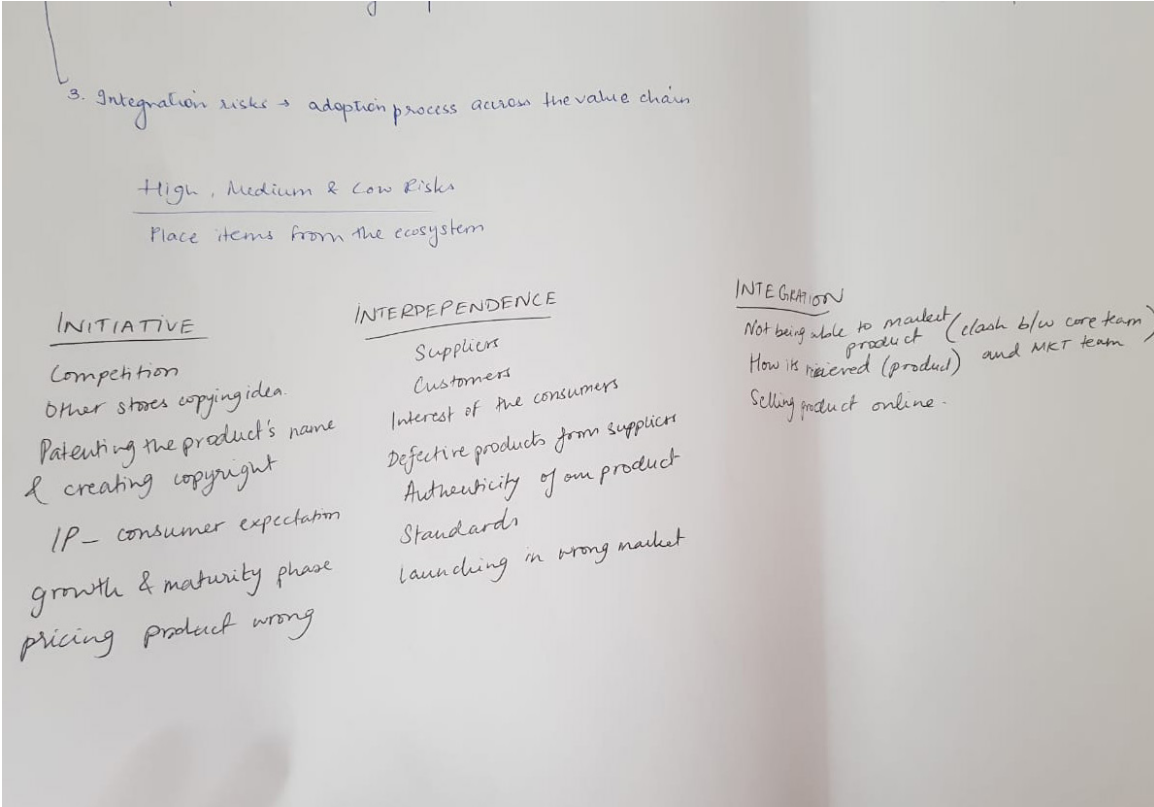 3. Integration risks → adoption process across the value chain
High, Medium & Low Risks
Place items from the ecosystem
INITIATIVE
Competition
Other stores copying idea.
Patenting the product's name
& creating copyright
IP - consumer expectation
growth & maturity phase
pricing product wrong
INTERDEPENDENCE
Suppliers
Customers
Interest of the consumers
Defective products from suppliers
Authenticity of our product
Standards
Launching in wrong market
INTEGRATION
Not being able to market product (clash b/w core team and MKT team)
How its (product)
Selling product online.